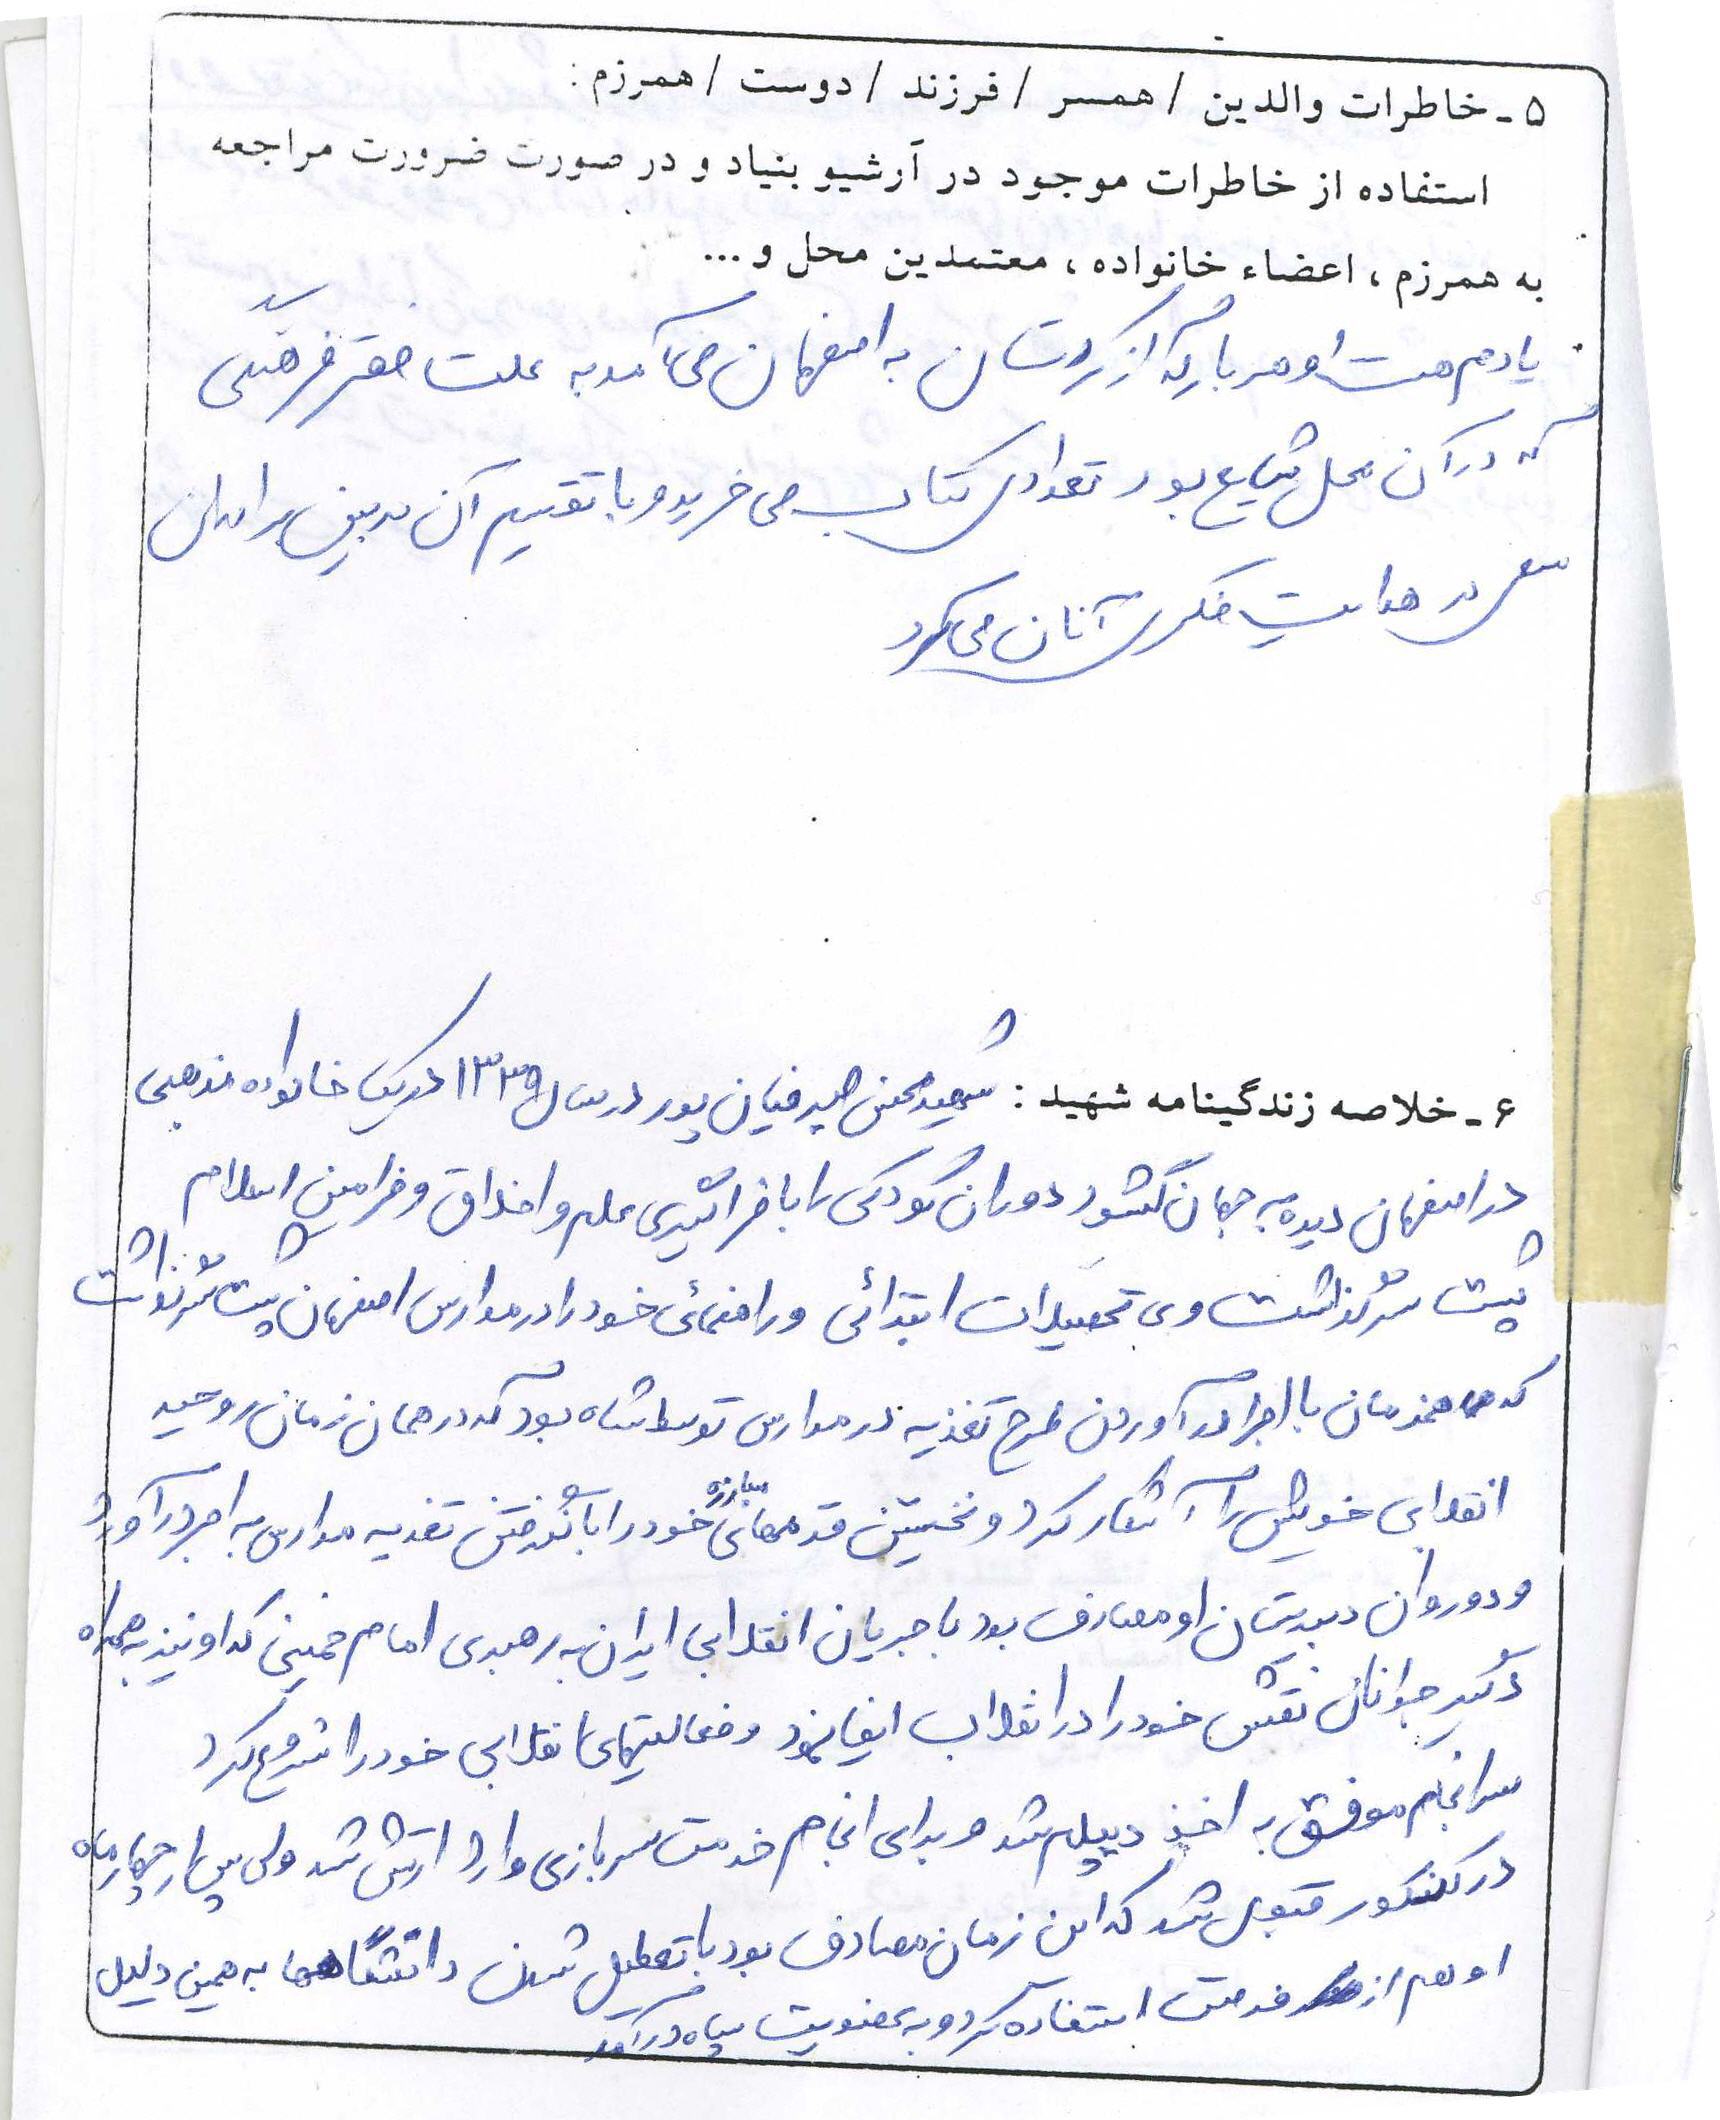 ۵ - خاطرات والدین / همسر / فرزند / دوست / همرزم :
استفاده از خاطرات موجود در آرشیو بنیاد و در صورت ضرورت مراجعه
به همرزم ، اعضاء خانواده ، معتمدین محل و ...
یادم هست او هر بار که از کردستان به اصفهان می آمد به علت فقر فرهنگی
که در آن محل شایع بود تعدادی کتاب می خرید و با تقسیم آن بین برادران
سعی در هدایت فکری آنان می کرد
۶ - خلاصه زندگینامه شهید : شهید محسن صیرفیان پور در سال ۱۳۳۹ در یک خانواده مذهبی
در اصفهان دیده به جهان گشود دوران کودکی را با فراگیری علم و اخلاق و فرامین اسلام
پشت سر گذاشت وی تحصیلات ابتدائی و راهنمائی خود را در مدارس اصفهان پشت سر گذاشت
که همزمان با اجرا در آوردن طرح تغذیه در مدارس توسط شاه بود که در همان زمان روحیه
انقلابی خویش را آشکار کرد و نخستین قدمهای مبارزه خود را با نگرفتن تغذیه مدارس به اجرا در آورد
و دوران دبیرستان او مصادف بود با جریان انقلابی ایران به رهبری امام خمینی که او نیز به همراه
دیگر جوانان نقش خود را در انقلاب ایفا نمود و فعالیتهای انقلابی خود را شروع کرد
سرانجام موفق به اخذ دیپلم شد و برای انجام خدمت سربازی وارد ارتش شد ولی پس از چهار ماه
در کنکور قبول شد که این زمان مصادف بود با تعطیل شدن دانشگاهها به همین دلیل
او هم از فرصت استفاده کرد و به عضویت سپاه در آمد